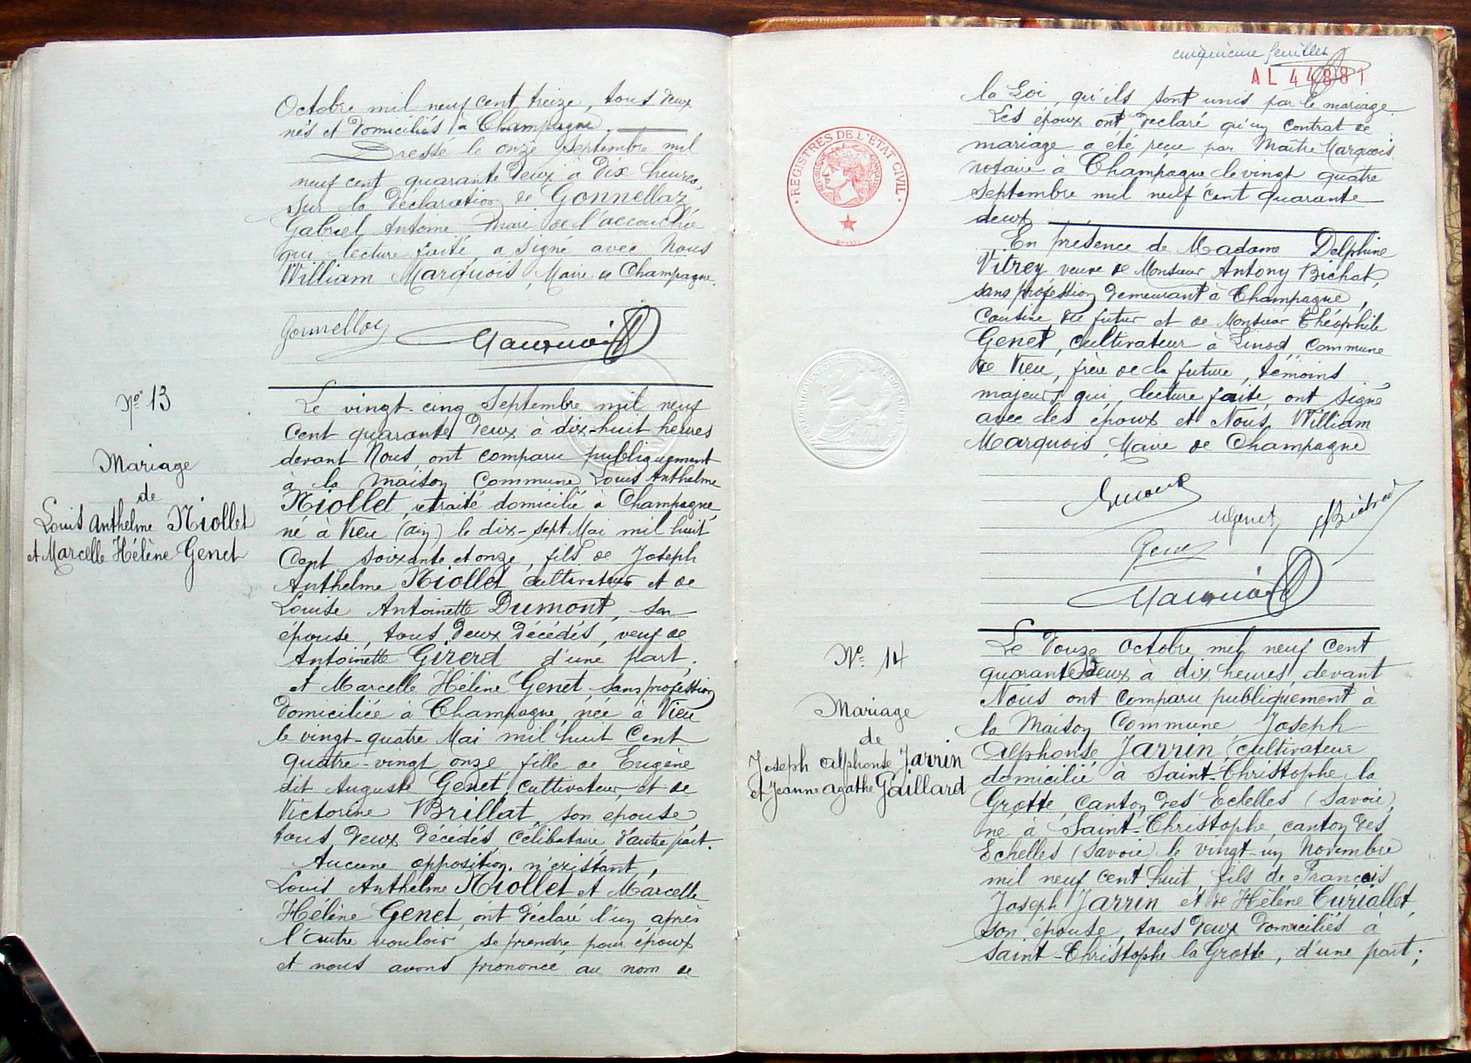 Octobre mil neuf cent treize, tous deux
nés et domiciliés à Champagne.
Dressé le onze Septembre mil
neuf cent quarante deux à dix heures,
sur la déclaration de Gonnellaz
Gabriel Antoine mari de l'accouchée
qui lecture faite, a signé avec Nous
William Marquois, Maire de Champagne.
N° 13
Mariage
de
Louis Anthelme Niollet
et Marcelle Hélène Genet
Le vingt-cinq Septembre mil neuf
cent quarante deux à dix-huit heures
devant Nous ont comparu publiquement
à la Maison Commune Louis Anthelme
Niollet, retraité domicilié à Champagne
né à Vieu (Ain) le dix-sept Mai mil huit
Cent soixante et onze, fils de Joseph
Anthelme Niollet cultivateur et de
Louise Antoinette Dumont, son
épouse, tous deux décédés, veuf de
Antoinette Girerd d'une part.
et Marcelle Hélène Genet sans profession
domiciliée à Champagne, née à Vieu
le vingt-quatre Mai mil huit Cent
quatre-vingt onze fille de Eugène
dit Auguste Genet cultivateur et de
Victorine Brillat, son épouse
tous deux décédés, célibataire d'autre part.
Aucune opposition n'existant,
Louis Anthelme Niollet et Marcelle
Hélène Genet, ont déclaré l'un après
l'autre vouloir se prendre pour époux
et nous avons prononcé au nom de
cinquième feuillet
AL 44881
la Loi, qu'ils sont unis par le mariage.
Les époux ont déclaré qu'un contrat de
mariage a été reçu par Maître Marquois
notaire à Champagne le vingt quatre
Septembre mil neuf cent quarante
deux
REGISTRES DE L'ETAT CIVIL
En présence de Madame Delphine
Vitrey veuve de Monsieur Antony Bichat,
sans profession demeurant à Champagne,
Cousine du futur et de Monsieur Théophile
Genet, cultivateur à Linod, Commune
de Vieu, frère de la future, témoins
majeurs qui, lecture faite, ont signé
avec les époux et Nous, William
Marquois, Maire de Champagne
N° 14
Mariage
de
Joseph Alphonse Jarrin
et Jeanne Agathe Gaillard
Le douze Octobre mil neuf cent
quarante deux à dix heures, devant
Nous ont comparu publiquement à
la Maison Commune Joseph
Alphonse Jarrin, cultivateur
domicilié à Saint-Christophe la
Grotte, canton des Echelles (Savoie)
né à Saint-Christophe canton des
Echelles (Savoie) le vingt-un Novembre
mil neuf cent huit fils de François
Joseph Jarrin et de Hélène Curiallet,
son épouse, tous deux domiciliés à
Saint-Christophe la Grotte, d'une part;